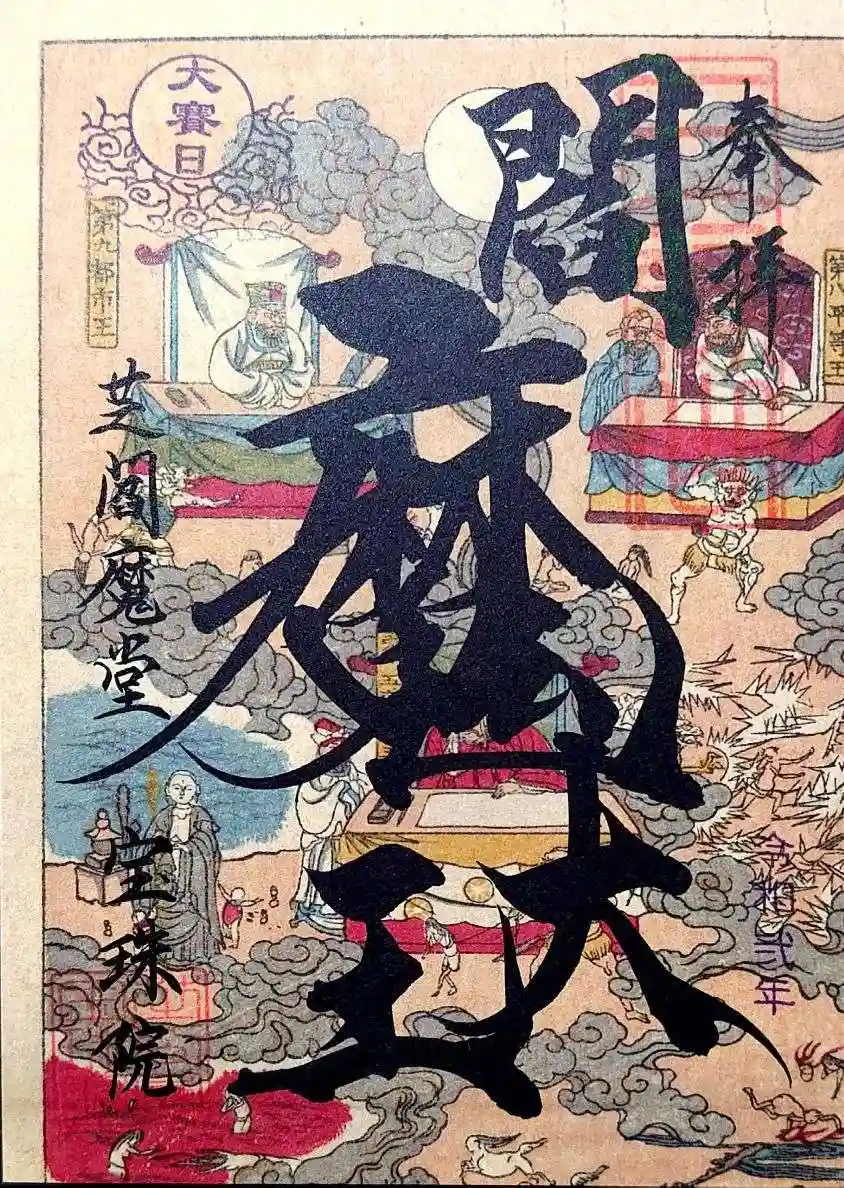 奉拝
第八平等王
令和弐年
閻魔大王
大賽日
第九都市王
芝閻魔堂
宝珠院